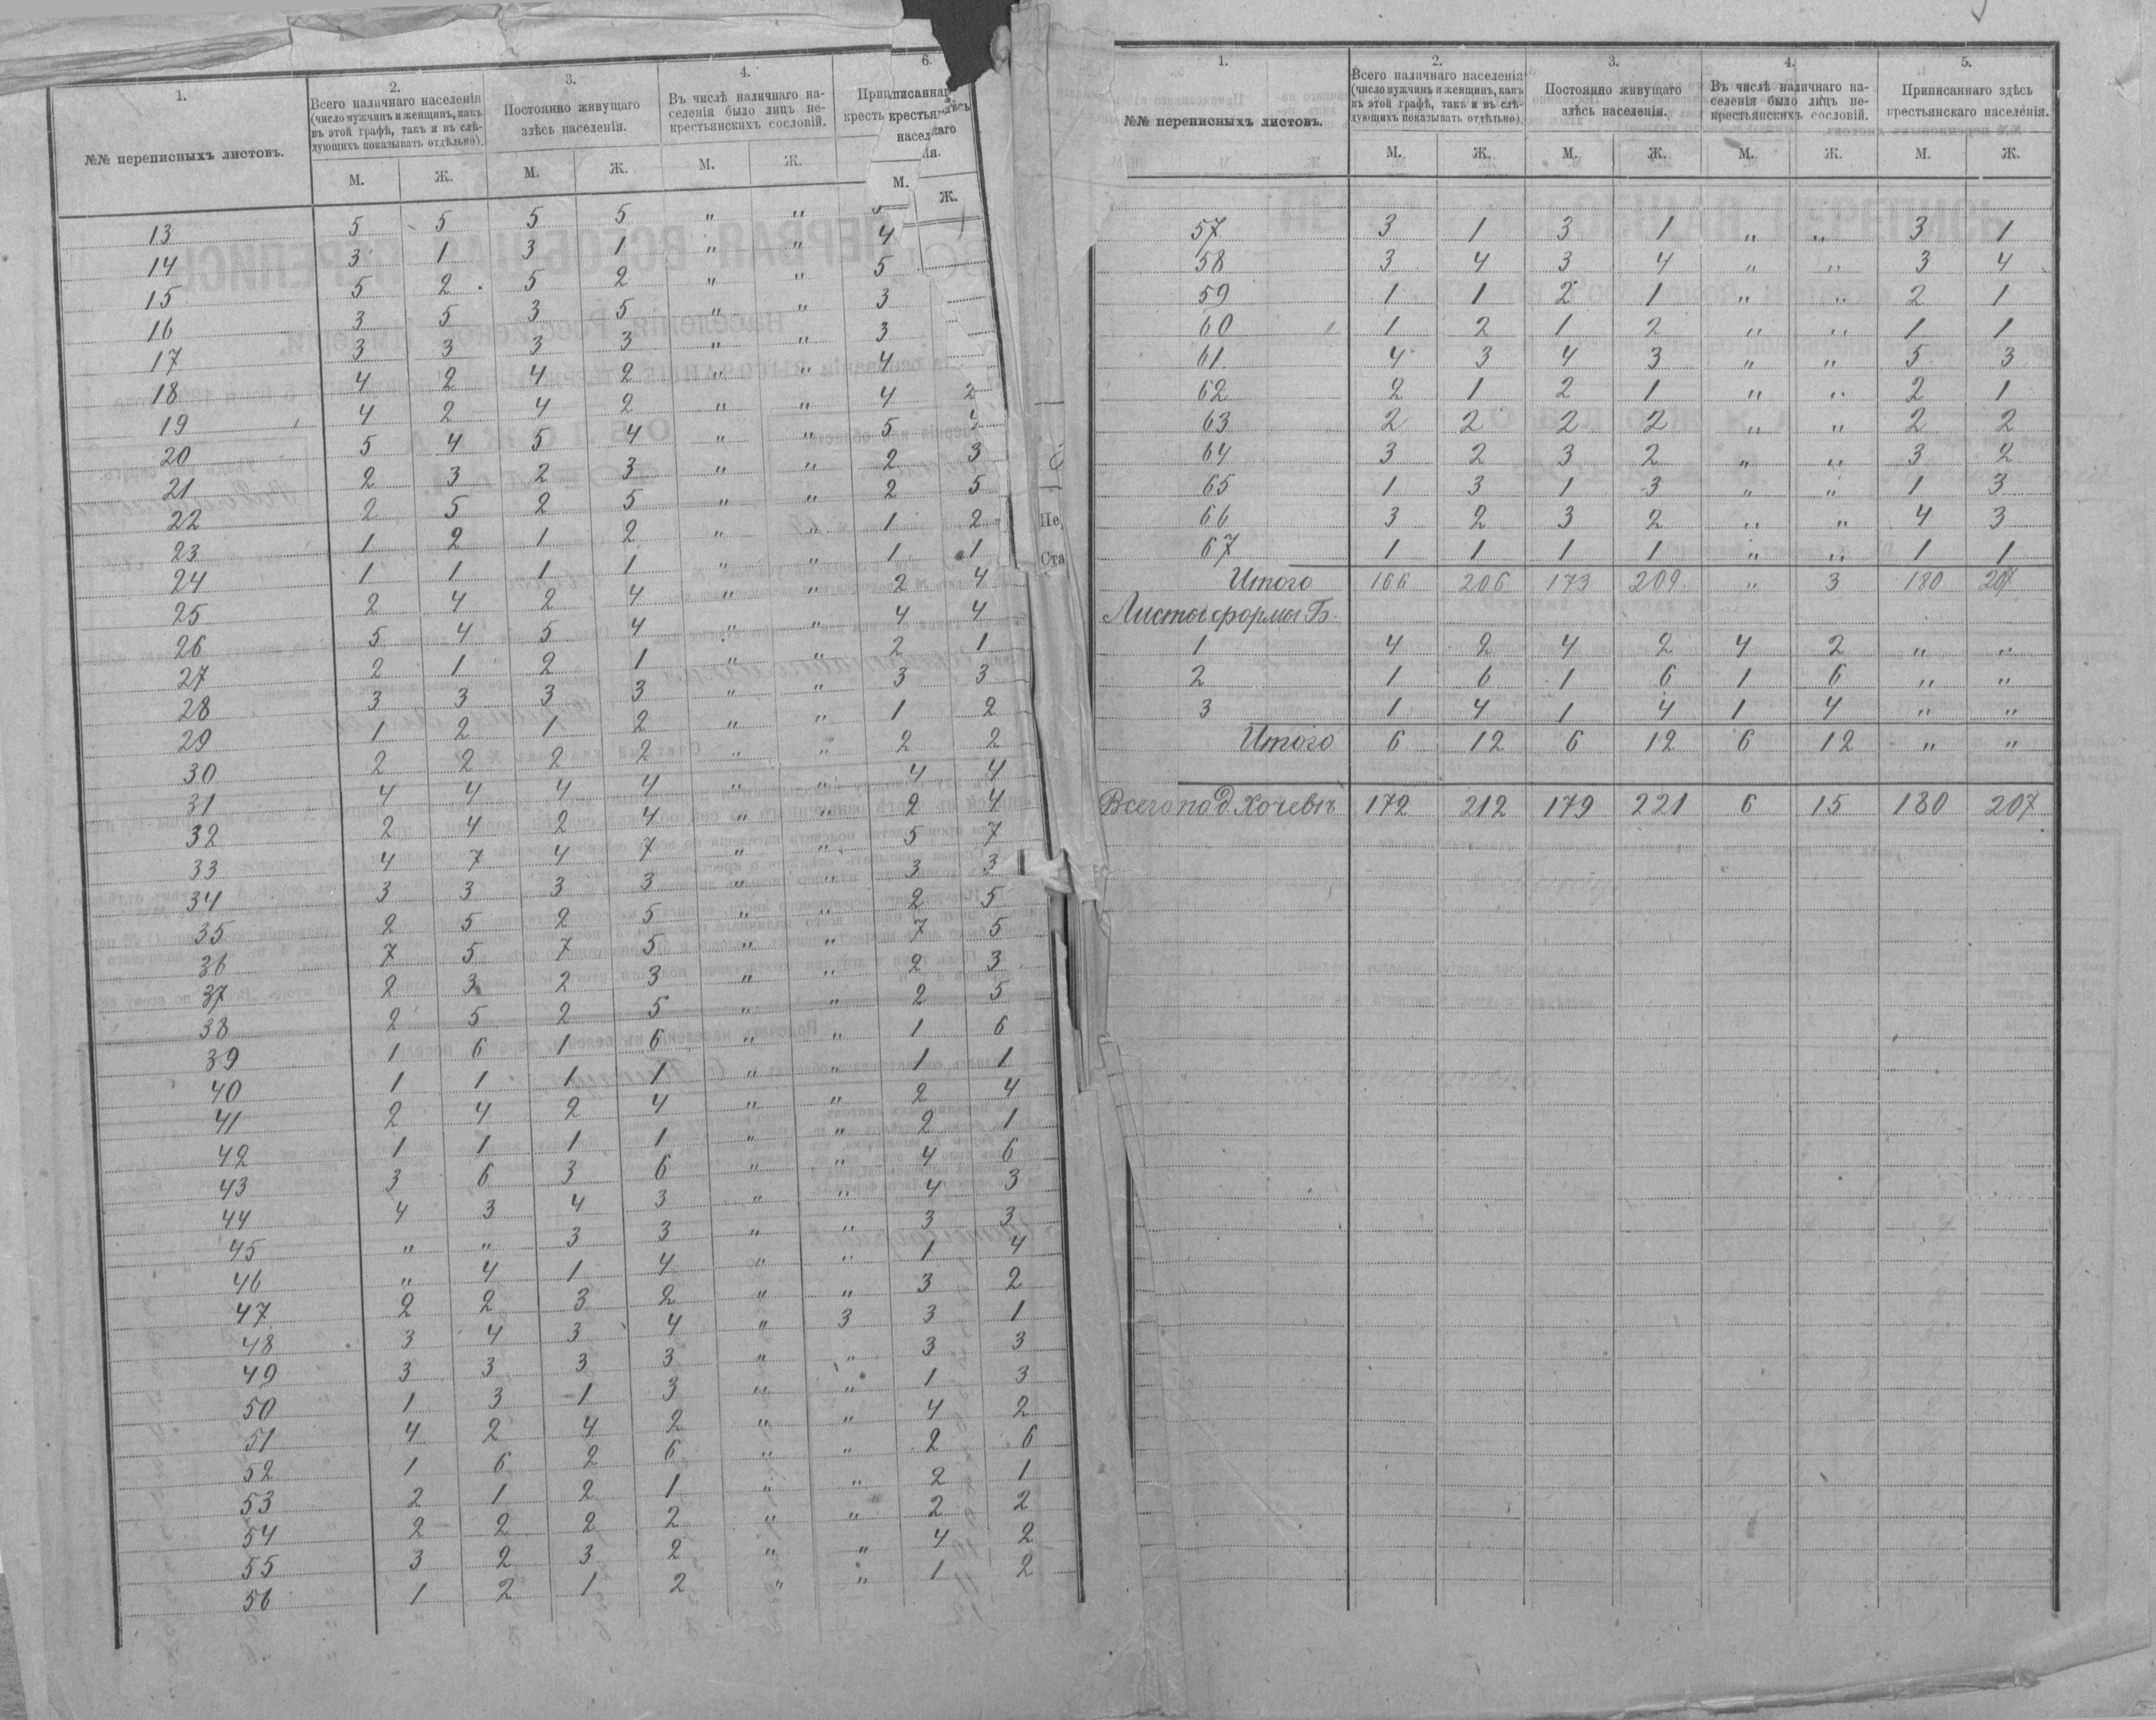 1. 2. 3. 4. 6.
№№ переписныхъ листовъ.
Всего наличнаго населенія
(число мужчинъ и женщинъ, какъ
въ этой графѣ, такъ и въ слѣ-
дующихъ показывать отдѣльно).
Постоянно живущаго
здѣсь населенія.
Въ числѣ наличнаго на-
селенія было лицъ не-
крестьянскихъ сословій.
М. Ж. М. Ж. М. Ж. М. Ж.
13 5 5 5 5 " "
14 3 1 3 1 " " 4
15 5 2 5 2 " " 5
16 3 5 3 5 " " 3
17 3 3 3 3 " " 3
18 4 2 4 2 " " 4
19 4 2 4 2 " " 4 2
20 5 4 5 4 " " 5 4
21 2 3 2 3 " " 2 3
22 2 5 2 5 " " 2 5
23 1 2 1 2 " " 1 2
24 1 1 1 1 " " 1 1
25 2 4 2 4 " " 2 4
26 5 4 5 4 " " 4 4
27 2 1 2 1 " " 2 1
28 3 3 3 3 " " 3 3
29 1 2 1 2 " " 1 2
30 2 2 2 2 " " 2 2
31 4 4 4 4 " " 4 4
32 2 4 2 4 " " 2 4
33 4 7 4 7 " " 5 7
34 3 3 3 3 " " 3 3
35 2 5 2 5 " " 2 5
36 7 5 7 5 " " 7 5
37 2 3 2 3 " " 2 3
38 2 5 2 5 " " 2 5
39 1 6 1 6 " " 1 6
40 1 1 1 1 " " 1 1
41 2 4 2 4 " " 2 4
42 1 1 1 1 " " 2 1
43 3 6 3 6 " " 4 6
44 4 3 4 3 " " 4 3
45 " " 3 3 " " 3 3
46 " 4 1 4 " " 1 4
47 2 2 3 2 " " 3 2
48 3 4 3 4 " 3 3 1
49 3 3 3 3 " " 3 3
50 1 3 1 3 " " 1 3
51 4 2 4 2 " " 4 2
52 1 6 2 6 " " 2 6
53 2 1 2 1 " " 2 1
54 2 2 2 2 " " 2 2
55 3 2 3 2 " " 4 2
56 1 2 1 2 " " 1 2
1. 2. 3. 4. 5.
№№ переписныхъ листовъ.
Всего наличнаго населенія
(число мужчинъ и женщинъ, какъ
въ этой графѣ, такъ и въ слѣ-
дующихъ показывать отдѣльно).
Постоянно живущаго
здѣсь населенія.
Въ числѣ наличнаго на-
селенія было лицъ не-
крестьянскихъ сословій.
Приписаннаго здѣсь
крестьянскаго населенія.
М. Ж. М. Ж. М. Ж. М. Ж.
57 3 1 3 1 " " 3 1
58 3 4 3 4 " " 3 4
59 1 1 2 1 " " 2 1
60 1 2 1 2 " " 1 1
61 4 3 4 3 " " 5 3
62 2 1 2 1 " " 2 1
63 2 2 2 2 " " 2 2
64 3 2 3 2 " " 3 2
65 1 3 1 3 " " 1 3
66 3 2 3 2 " " 4 3
67 1 1 1 1 " " 1 1
Итого 166 206 173 209 " 3 180 207
Листы формы Б.
1 4 2 4 2 4 2 " "
2 1 6 1 6 1 6 " "
3 1 4 1 4 1 4 " "
Итого 6 12 6 12 6 12 " "
Всего по д. Хочевѣ 172 212 179 221 6 15 180 207